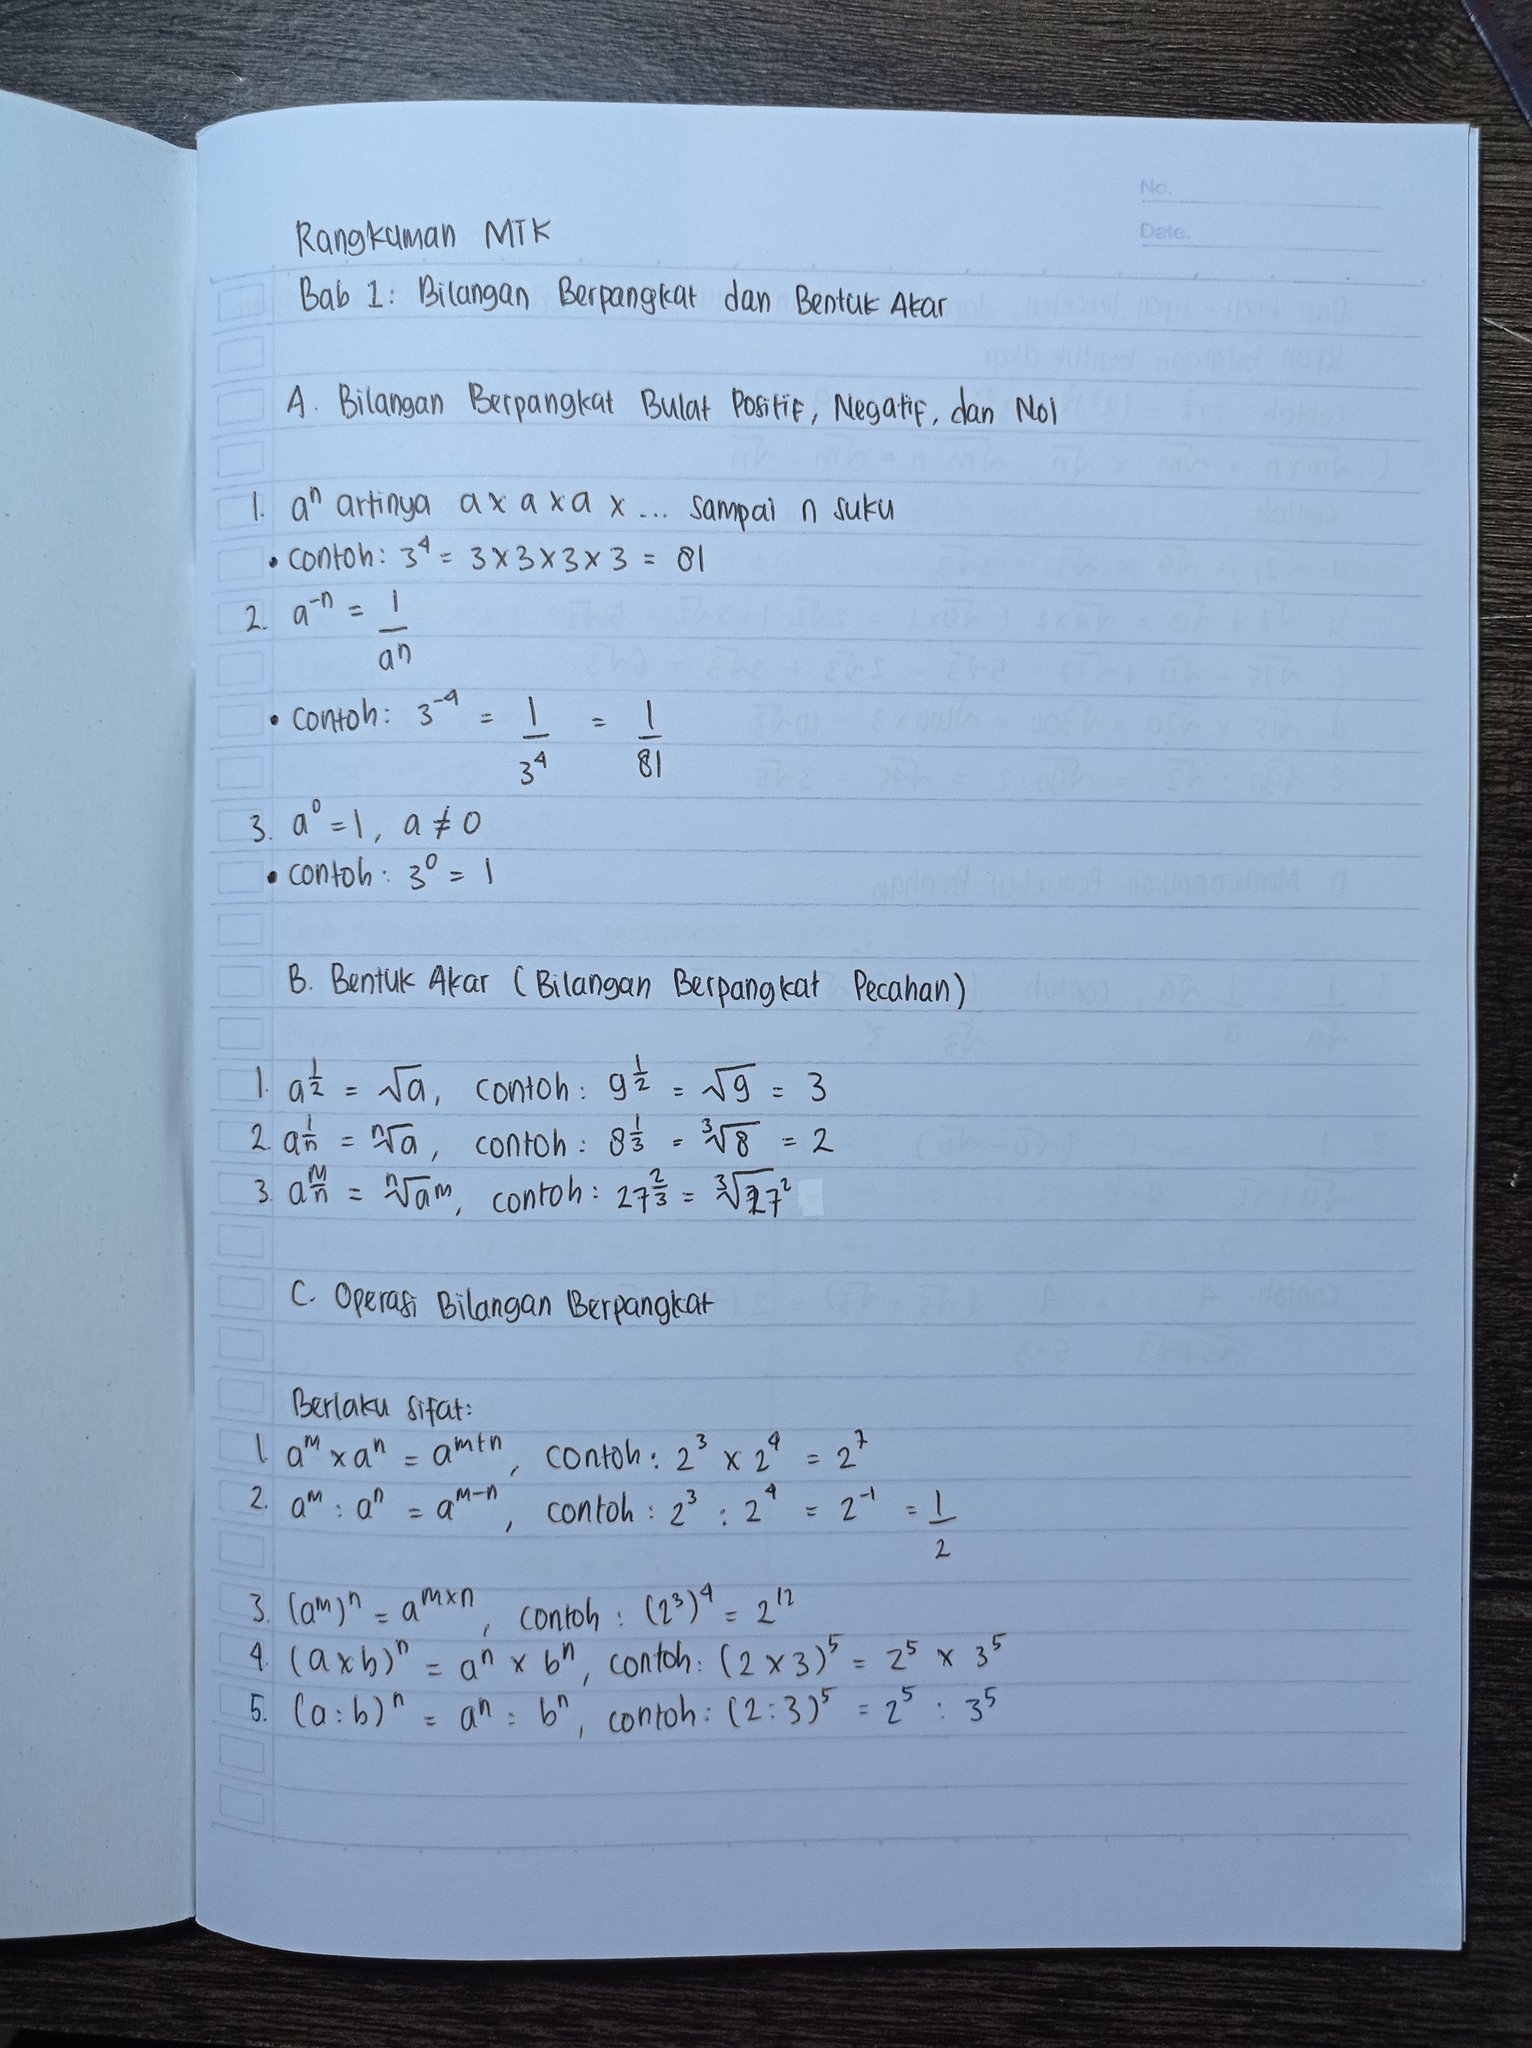 No.
Date.
Rangkuman MTK
Bab 1: Bilangan Berpangkat dan Bentuk Akar
A. Bilangan Berpangkat Bulat Positif, Negatif, dan Nol
1. aⁿ artinya a x a x a x ... sampai n suku
• contoh: 3⁴ = 3 x 3 x 3 x 3 = 81
2. a⁻ⁿ = 1/aⁿ
• contoh: 3⁻⁴ = 1/3⁴ = 1/81
3. a⁰ = 1, a ≠ 0
• contoh: 3⁰ = 1
B. Bentuk Akar (Bilangan Berpangkat Pecahan)
1. a^(1/2) = √a, contoh: 9^(1/2) = √9 = 3
2. a^(1/n) = ⁿ√a, contoh: 8^(1/3) = ³√8 = 2
3. a^(m/n) = ⁿ√aᵐ, contoh: 27^(2/3) = ³√27²
C. Operasi Bilangan Berpangkat
Berlaku sifat:
1. aᵐ x aⁿ = aᵐ⁺ⁿ, contoh: 2³ x 2⁴ = 2⁷
2. aᵐ : aⁿ = aᵐ⁻ⁿ, contoh: 2³ : 2⁴ = 2⁻¹ = 1/2
3. (aᵐ)ⁿ = a^(m x n), contoh: (2³)⁴ = 2¹²
4. (a x b)ⁿ = aⁿ x bⁿ, contoh: (2 x 3)⁵ = 2⁵ x 3⁵
5. (a : b)ⁿ = aⁿ : bⁿ, contoh: (2 : 3)⁵ = 2⁵ : 3⁵